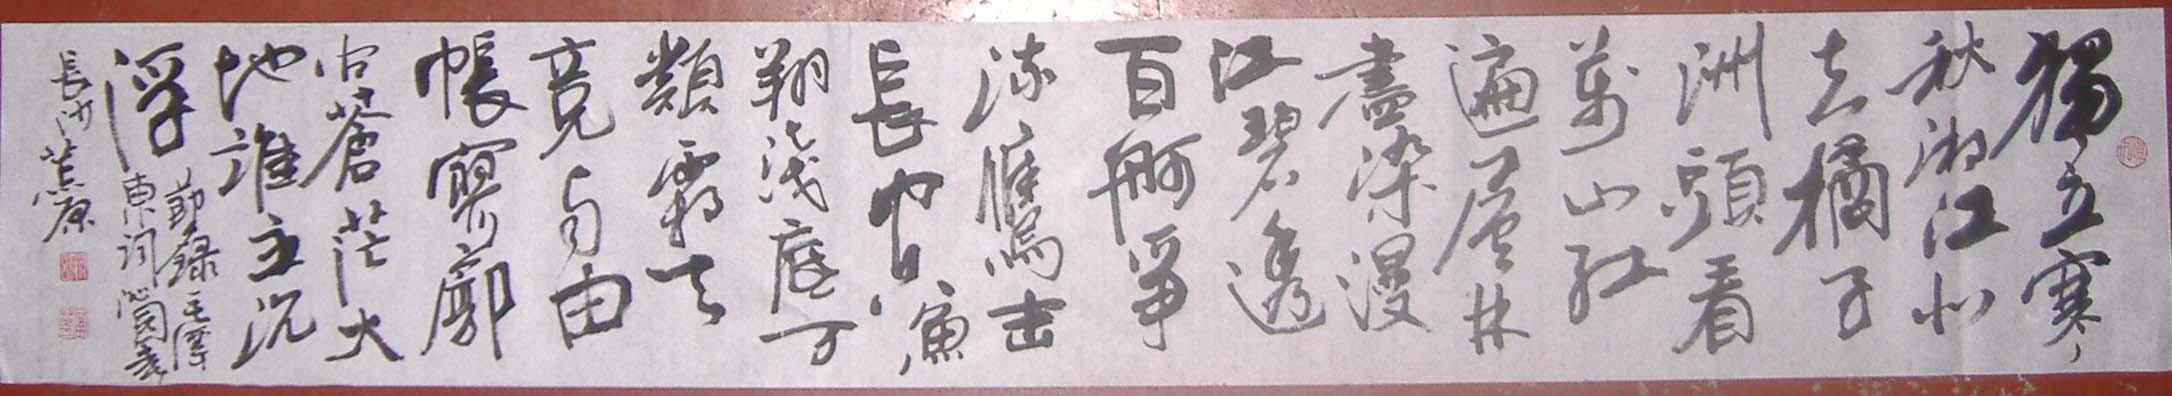 獨立寒
秋湘江北
去橘子
洲頭看
萬山紅
遍層林
盡染漫
江碧透
百舸爭
流鷹擊
長空魚
翔淺底万
類霜天
競自由
悵寥廓
問蒼茫大
地誰主沉
浮
節錄毛澤
東詞沁園春
長沙